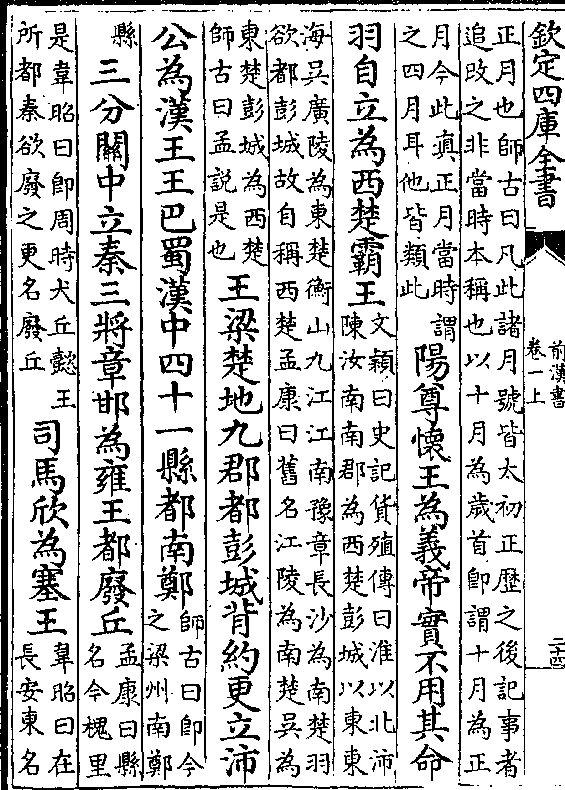 欽定四庫全書
前漢書
卷一上
二十四
正月也師古曰凡此諸月號皆太初正歷之後記事者
追攺之非當時本稱也以十月為歲首即謂十月為正
月今此真正月當時謂
之四月耳他皆類此
陽尊懷王為義帝實不用其命
羽自立為西楚霸王
文穎曰史記貨殖傳曰淮以北沛
陳汝南南郡為西楚彭城以東東
海吳廣陵為東楚衡山九江江南豫章長沙為南楚羽
欲都彭城故自稱西楚孟康曰舊名江陵為南楚吳為
東楚彭城為西楚
師古曰孟說是也
王梁楚地九郡都彭城背約更立沛
公為漢王王巴蜀漢中四十一縣都南鄭
師古曰即今
之梁州南鄭
縣
三分關中立秦三將章邯為雍王都廢丘
孟康曰縣
名今槐里
是韋昭曰即周時犬丘懿王
所都秦欲廢之更名廢丘
司馬欣為塞王
韋昭曰在
長安東名